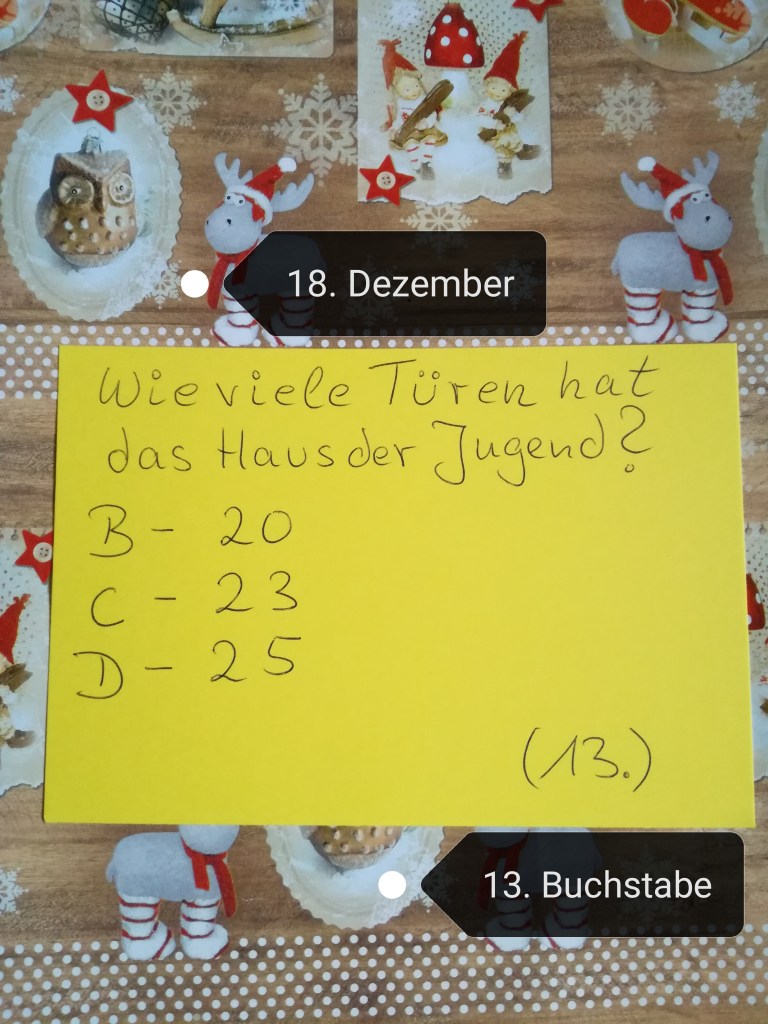 18. Dezember
Wie viele Türen hat
das Haus der Jugend?
B - 20
C - 23
D - 25
(13.)
13. Buchstabe